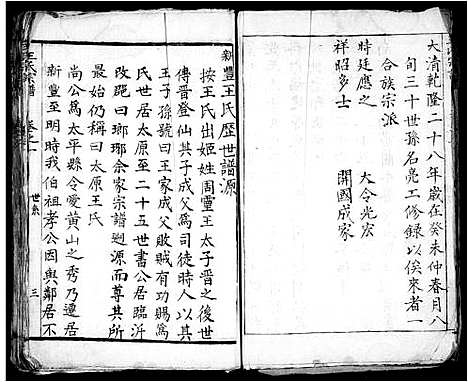 大清乾隆二十八年歲在癸未仲春月八
旬三十世孫名亮工修録以俟來者一
合族宗派
時廷應之　大令光宏
祥昭多士　開國成家
新豐王氏歷世譜源
按王氏出姬姓周靈王太子晉之後世
傳晉登仙其子成父爲司徒時人以其
王子孫號曰王家成父敗賊有功賜爲
氏世居太原至二十五世書公居臨沂
改題曰瑯琊余家宗譜遡源而尊其所
最始仍稱曰太原王氏
尚公爲太平縣令愛黃山之秀乃遷居
新豐至明時我伯祖孝公因與鄰居不
王氏宗譜　卷之一　世系　三